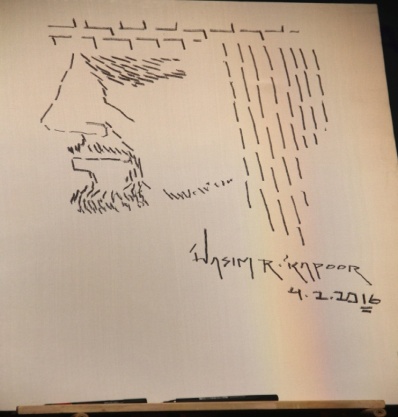 WASIM R. KAPOOR
4.2.2016